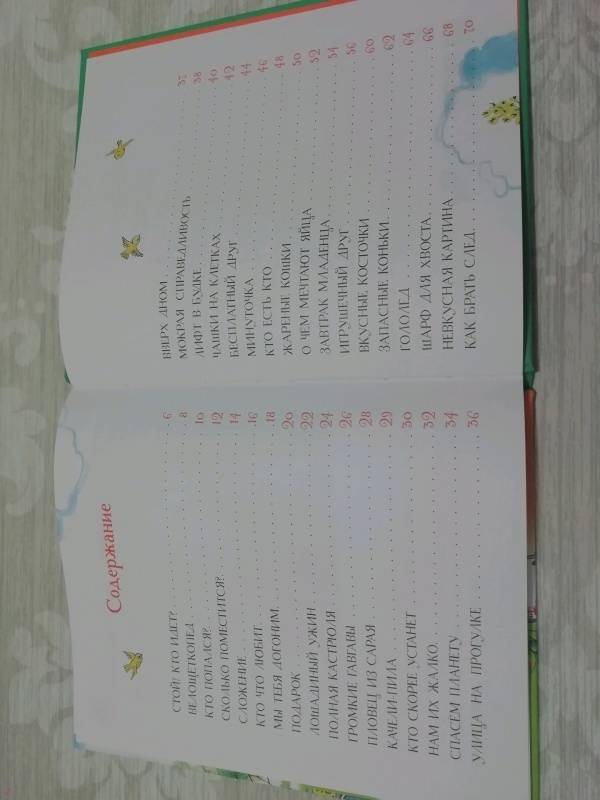 Содержание
СТОЙ! КТО ИДЕТ? . . . . . 6
ВЕЛОЩЕТКОПЕД . . . . . 8
КТО ПОПАЛСЯ? . . . . . 10
СКОЛЬКО ПОМЕСТИТСЯ? . . . . . 12
СЛОЖЕНИЕ . . . . . 14
КТО ЧТО ЛЮБИТ . . . . . 16
МЫ ТЕБЯ ДОГОНИМ . . . . . 18
ПОДАРОК . . . . . 20
ЛОШАДИНЫЙ УЖИН . . . . . 22
ПОЛНАЯ КАСТРЮЛЯ . . . . . 24
ГРОМКИЕ ГАВГАВЫ . . . . . 26
ПЛОВЕЦ ИЗ САРАЯ . . . . . 28
КАЧЕЛИ-ПИЛА . . . . . 29
КТО СКОРЕЕ УСТАНЕТ . . . . . 30
НАМ ИХ ЖАЛКО . . . . . 32
СПАСЕМ ПЛАНЕТУ . . . . . 34
УЛИЦА НА ПРОГУЛКЕ . . . . . 36
ВВЕРХ ДНОМ . . . . . 37
МОКРАЯ СПРАВЕДЛИВОСТЬ . . . . . 38
ЛИФТ В БУДКЕ . . . . . 40
ЧАШКИ НА КЛЕТКАХ . . . . . 42
БЕСПЛАТНЫЙ ДРУГ . . . . . 44
МИНУТОЧКА . . . . . 46
КТО ЕСТЬ КТО . . . . . 48
ЖАРЕНЫЕ КОШКИ . . . . . 50
О ЧЕМ МЕЧТАЮТ ЯЙЦА . . . . . 52
ЗАВТРАК МЛАДЕНЦА . . . . . 54
ИГРУШЕЧНЫЙ ДРУГ . . . . . 56
ВКУСНЫЕ КОСТОЧКИ . . . . . 60
ЗАПАСНЫЕ КОНЬКИ . . . . . 62
ГОЛОЛЕД . . . . . 64
ШАРФ ДЛЯ ХВОСТА . . . . . 66
НЕВКУСНАЯ КАРТИНА . . . . . 68
КАК БРАТЬ СЛЕД . . . . . 70